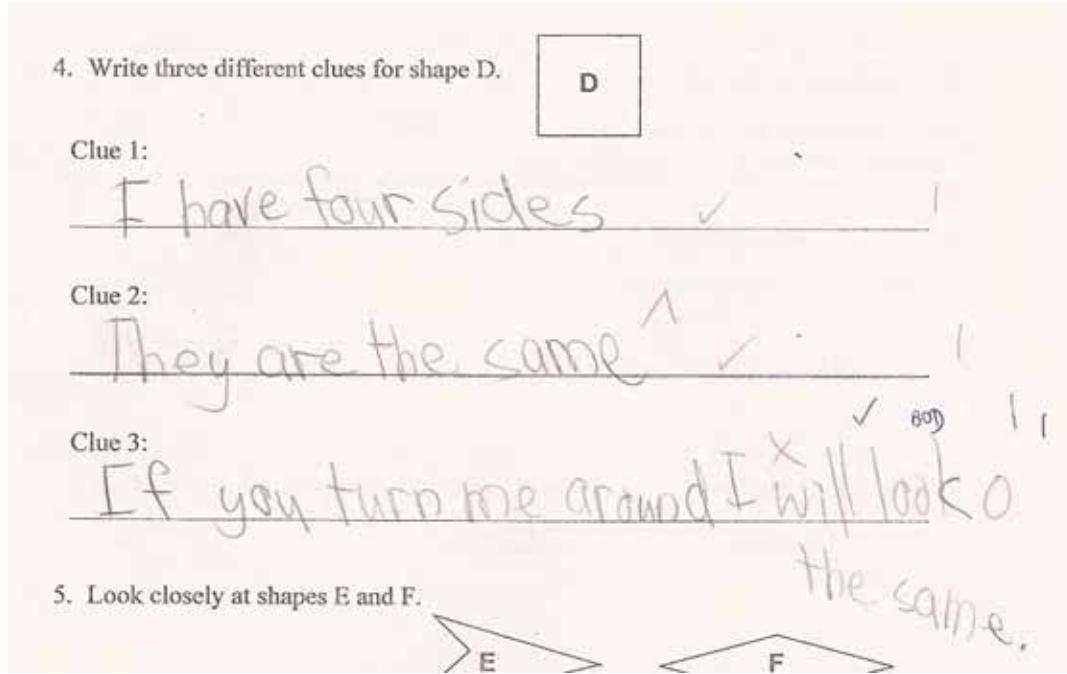 4. Write three different clues for shape D.
D
Clue 1:
I have four sides ✓ 1
Clue 2:
They are the same ^ ✓ 1
✓ BOD 1 1
Clue 3:
x
If you turn me around I will look 0
the same.
5. Look closely at shapes E and F.
E F